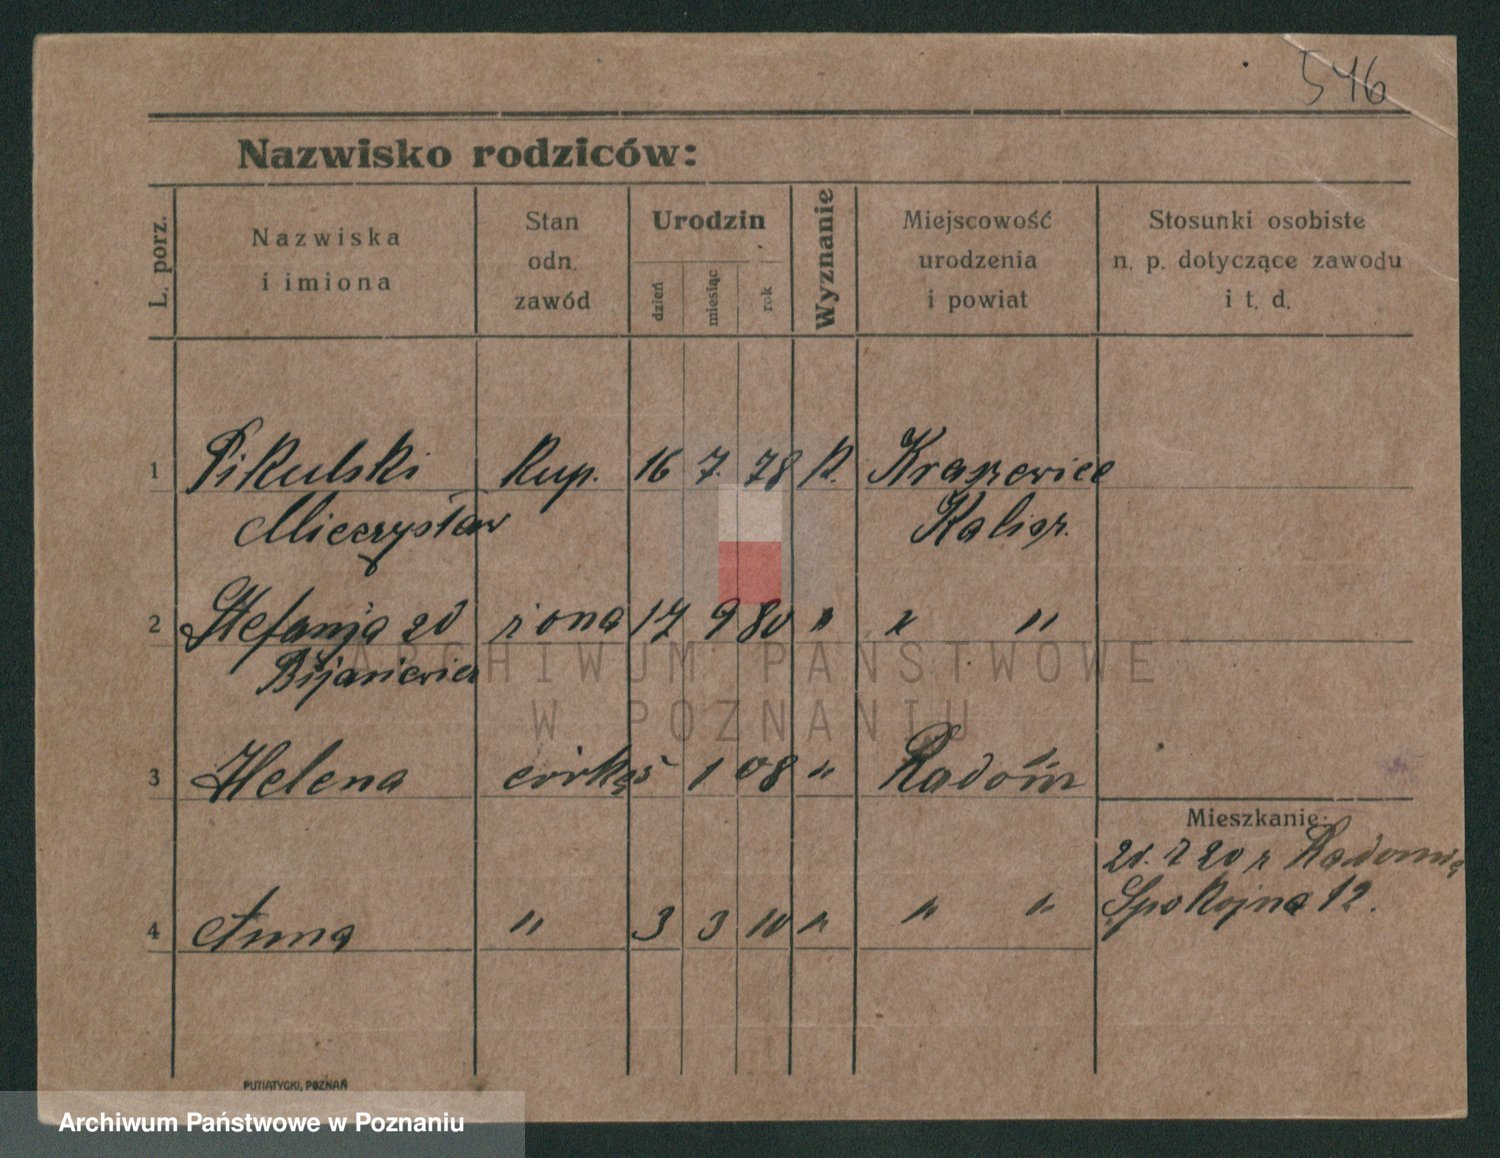 546
Nazwisko rodziców:
L. porz.
Nazwiska
i imiona
Stan
odn.
zawód
Urodzin
dzień
miesiąc
rok
Wyznanie
Miejscowość
urodzenia
i powiat
Stosunki osobiste
n. p. dotyczące zawodu
i t. d.
1 Pikulski kup. 16 7. 78 k. Kraszewice
Mieczysław Kalisz.
2 Stefanja zd żona 17 9 80 " " "
ARCHIWUM PAŃSTWOWE
W POZNANIU
3 Helena córka 5 1 08 " Radom
Mieszkanie:
21. 7 20 z Radomia
Spokojna 12.
4 Anna " 3 3 10 " " "
PUTIATYCKI, POZNAŃ
Archiwum Państwowe w Poznaniu